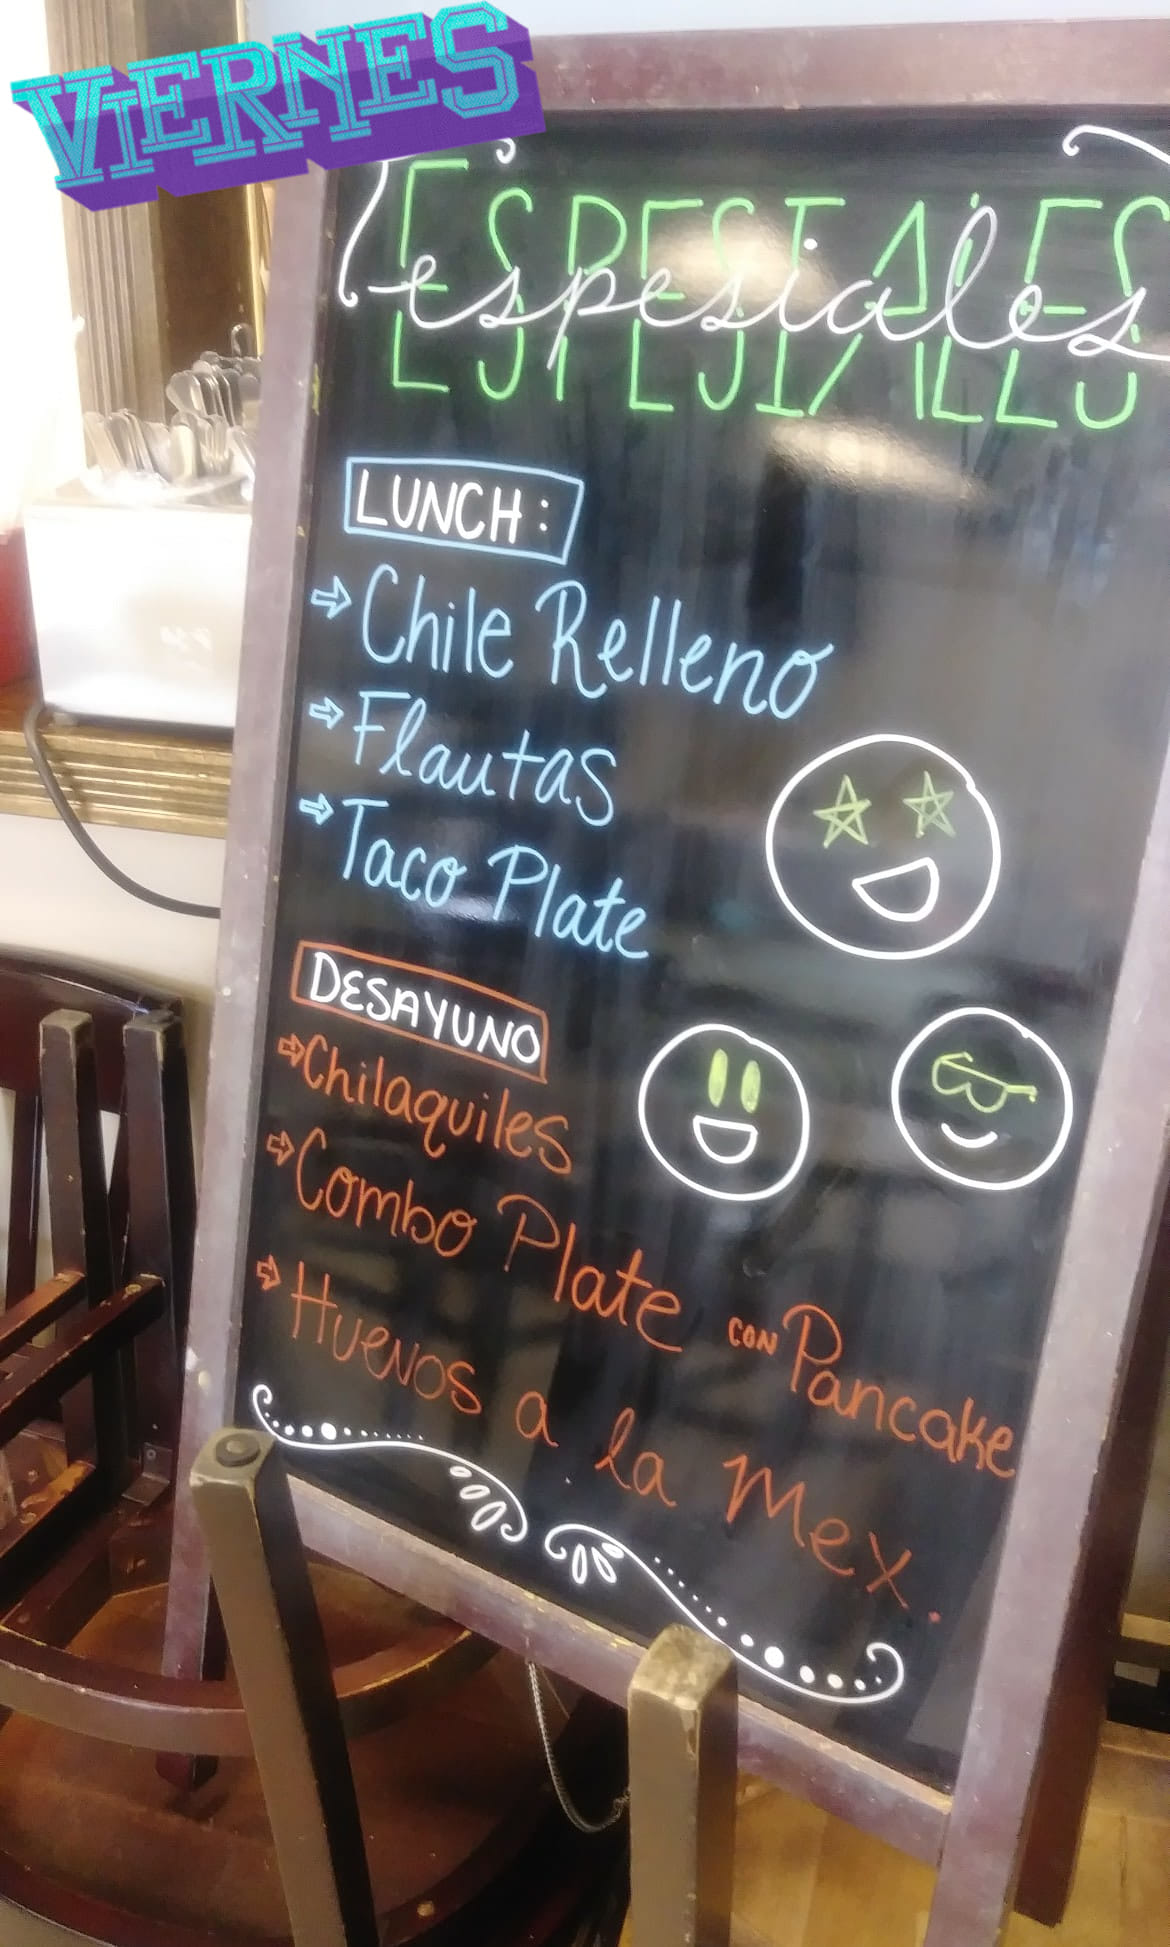 VIERNES
ESPESIALES
espesiales
LUNCH:
⇨ Chile Relleno
⇨ Flautas
⇨ Taco Plate
DESAYUNO
⇨ Chilaquiles
⇨ Combo Plate con Pancake
⇨ Huevos a la Mex.